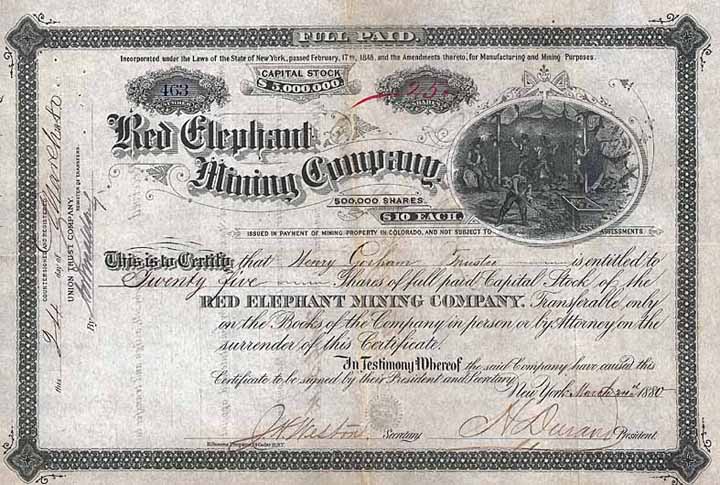 FULL PAID.
Incorporated under the Laws of the State of New York, passed February, 17th, 1848, and the Amendments thereto, for Manufacturing and Mining Purposes.
CAPITAL STOCK
$5,000,000
463
25
SHARES
Red Elephant
Mining Company
500,000 SHARES.
$10 EACH.
ISSUED IN PAYMENT OF MINING PROPERTY IN COLORADO, AND NOT SUBJECT TO ASSESSMENTS
This is to Certify that Henry Gorham Trustee is entitled to
Twenty five Shares of full paid Capital Stock of the
RED ELEPHANT MINING COMPANY. Transferable only
on the Books of the Company in person or by Attorney on the
surrender of this Certificate.
In Testimony Whereof the said Company have caused this
Certificate to be signed by their President and Secretary
New York March 24th 1880
Secretary
President.
COUNTERSIGNED AND REGISTERED
this 24 day of March 1880
UNION TRUST COMPANY,
REGISTRAR OF TRANSFERS.
By